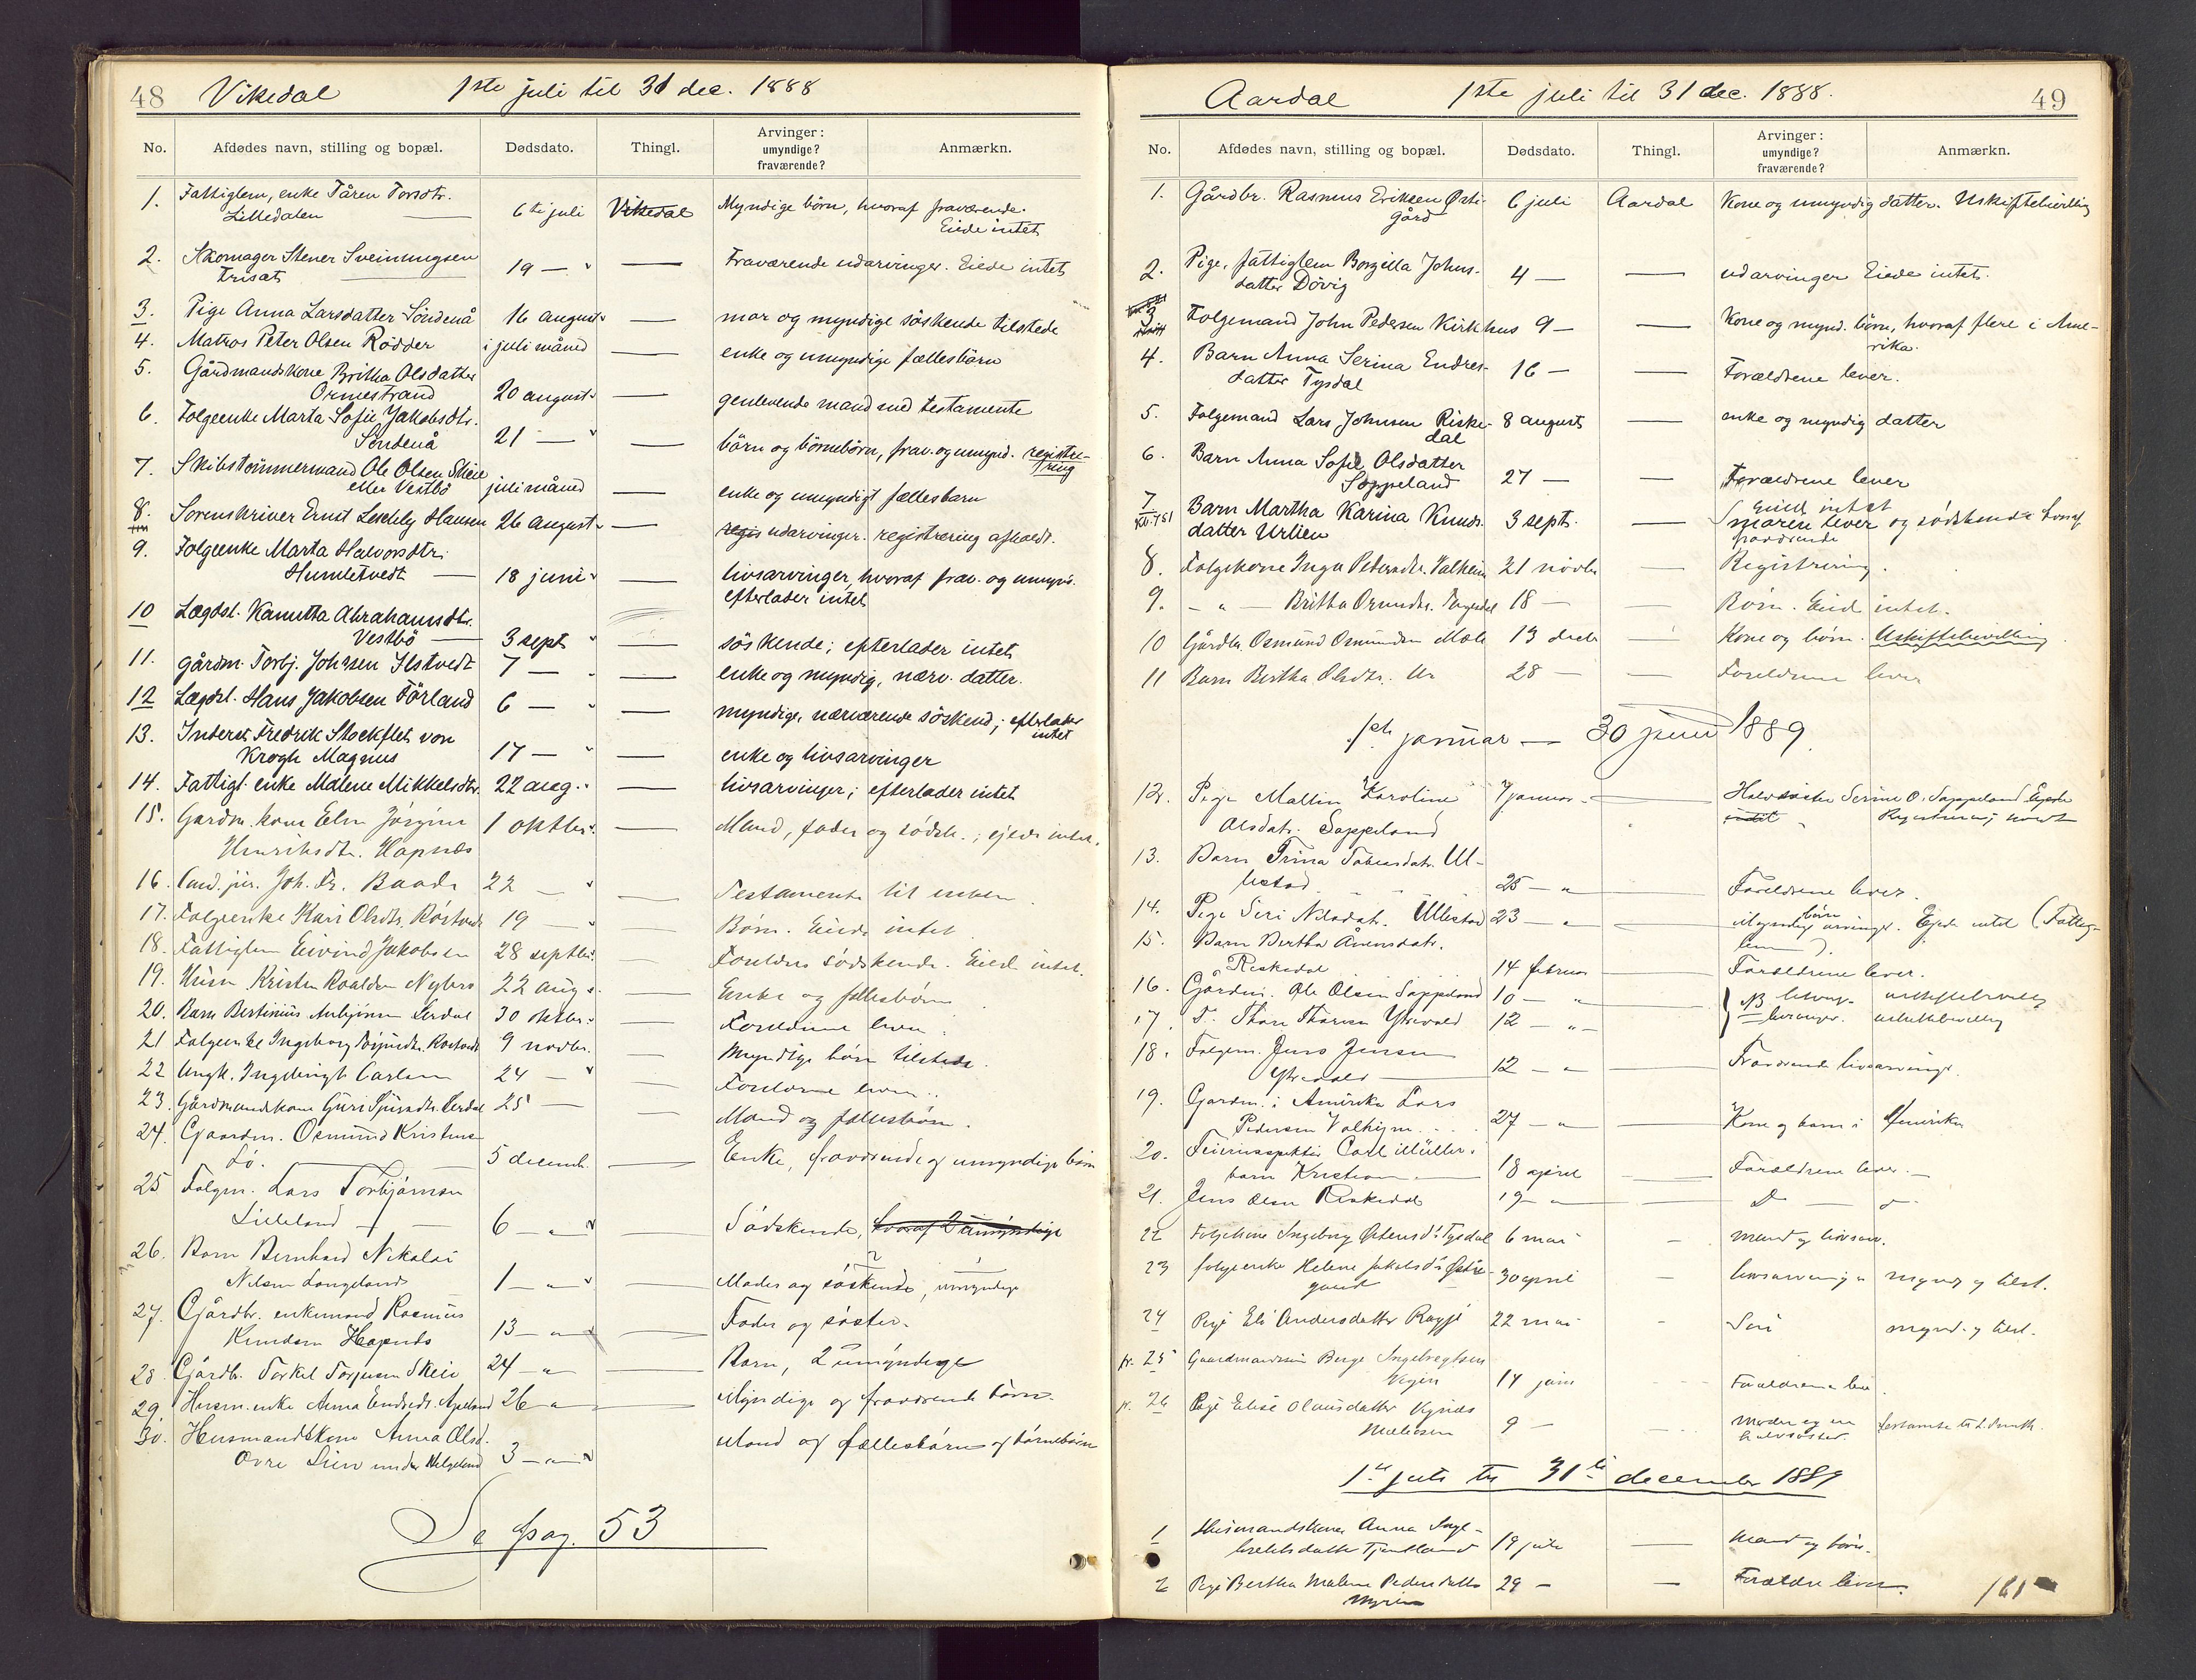 48 Vikedal 1ste juli til 31 dec. 1888
No. Afdødes navn, stilling og bopæl. Dødsdato. Thingl. Arvinger: umyndige? fraværende? Anmærkn.
1. Fattiglem, enke Tåren Torsdtr.
Lilledalen 6te juli Vikedal Myndige børn, hvoraf fraværende.
Eiede intet
2. Skomager Stener Sveinungsen
Trisat 19 — " — Fraværende udarvinger. Eiede intet
3. Pige Anna Larsdatter Söndenå 16 august — mor og myndige söskende tilstede
4. Matros Peter Olsen Rødder i juli måned — enke og umyndige fællesbörn
5. Gårdmandskone Britha Olsdatter
Ormestrand 20 august — genlevende mand med testamente
6. Folgeenke Marta Sofie Jakobsdtr.
Söndenå 21 — " — börn og börnebörn, frav. og umynd. registre-
ring
7. Skibstömmermand Ole Olsen Skeie
eller Vestbö juli måned — enke og umyndigt fællesbarn
8. Sorenskriver Ernst Leschly Hansen 26 august — regis udarvinger. registrering afholdt.
9. Folgeenke Marta Halvorsdtr.
Humletvedt — 18 juni — livsarvinger, hvoraf frav. og umynd.
efterlader intet
10 Lægdsl. Kanutta Abrahamsdtr.
Vestbö — 3 sept " — söskende; efterlader intet
11. gårdm. Torbj. Johnsen Ilstvedt 7 — — enke og myndig, nærv. datter.
12 Lægdsl. Hans Jakobsen Förland 6 — " — myndige, nærværende söskend; efterlader
intet
13. Inderst Fredrik Stockfleth von
Krogh Magnus 17 — " — enke og livsarvinger
14. Fattigl. enke Malene Mikkelsdtr. 22 aug. — livsarvinger; efterlader intet
15. Gardm. kone Elen Jörgine
Henriksdtr. Hapnæs 1 oktbr. — Mand, fader og södsk.; ejede intet.
16. Cand. jur. Joh. Fr. Baade 22 — " — Testamente til enken.
17. Folgeenke Kari Olsdtr. 19 — " — Börn. Eiede intet
18. Fattiglem Eivind Jakobsen 28 septbr. — Forældres södskende. Eied intet.
19. Husm. Kristen Roaldsen Nyberg 22 aug. — Enke og fellesbörn
20. Barn Bertinius 30 oktbr. — Foreldrene lever.
21 Folgeenke Ingeborg 9 novbr. — Myndige börn tilstede.
22 Ungk. Ingebrigt Carlsen 24 — " — Foreldrene lever.
23. Gårdmandskone Guri 25 — — Mand og fellesbörn.
24. Gaardm. Osmund Kristensen
Lö. 5 decemb. — Enke, fraværende og umyndige börn
25 Folgm. Lars Torbjörnsen
Lilleland — 6 — " — Södskende, hvoraf 2 umyndige
26. Barn Bernhard Nikolai
Nilsen Langeland 1 — " — Moder og söskende, umyndige
27. Gårdbr. enkemand Rasmus
Knudsen Hapnæs 13 — " — Fader og söster.
28 Gårdb. Torkel Torjusen Skeie 24 — " — Barn, 2 umyndige
29. Husm. enke Anna Endresdtr. Apeland 26 — " — Myndige og fraværende börn.
30. Husmandskone Anna Olsd.
Övre Lien under Helgeland 3 — " — Mand og fællesbörn og börnebörn
Se pag. 53
Aardal 1ste juli til 31 dec. 1888. 49
No. Afdødes navn, stilling og bopæl. Dødsdato. Thingl. Arvinger: umyndige? fraværende? Anmærkn.
1. Gårdbr. Rasmus Eriksen Østi-
gård 6 juli Aardal Kone og umyndig datter. Uskiftebevilling
2. Pige, fattiglem Borgilla Johns-
datter Dövig 4 — — udarvinger Eiede intet.
3 Folgemand John Pedersen Kirkhus 9 — — Kone og mynd. börn, hvoraf flere i Ame-
rika.
4. Barn Anna Serina Endres-
datter Tysdal 16 — — Forældrene lever.
5. Folgemand Lars Johnsen Riske-
dal 8 august — enke og myndig datter
6. Barn Anna Sofie Olsdatter
Soppeland 27 — — Forældrene lever
7 Barn Martha Karina Knuds-
datter Urlien 3 sept. — Eied intet
moren lever og södskende hvoraf
fraværende
8. Folgekone Inger Pedersdtr. Valheim 21 novbr — Registrering.
9. — " — Britha 18 — — Börn. Eied intet.
10 Gårdbr. Osmund Osmundsen Mæle 13 decbr — Kone og börn. Uskiftebevilling
11 Barn Bertha Olsdtr. Ur 28 — — Foreldrene lever
1ste januar — 30 juni 1889.
12. Pige Mallin Karoline
Olsdatr. Soppeland 7 januar — Halvsöster Serine O. Soppeland Ejede
intet Registrering
13. Barn Trina Tobiasdatr. Ul-
lestad 25 — " — Foreldrene lever.
14. Pige Siri Nilsdatr. Ullestad 23 — " — Myndige börn arvinger. Ejede intet (Fattig-
lem).
15. Barn Bertha
Riskedal 14 februar — Forældrene lever.
16. Gårdm. Ole Olsen Soppeland 10 — " NB uskiftebevilling
17. F. Thore Thoresen 12 — " — livsarvinger. uskiftebevilling
18. Folgem. Jens Jensen
12 — " — Fraværende livsarvinger.
19. Gardm. i Amerika Lars
Pedersen Valheim 27 — " — Kone og barn i Amerika
20. Carl Müllers
barn Kristian 18 april — Forældrene lever. —
21. Jens Olsen Riskedal 19 — " — D — o —
22 Folgekone Ingeborg Tysdal 6 mai — mand og livsarv.
23 folgeenke Helene Jakobsd. Østi-
gaard 30 april — livsarvinger mynd. og tilst.
24 Pige Eli Andersdatter 22 mai — mynd. og tilst.
25 Gaardmandssön Berge Ingebregtsen
14 juni Forældrene lever.
26 Pige Elise Olausdatter
9 — Moder og en
halvsöster.
1ste juli til 31te december 1889
1 Husmandskone Anna Inge-
brektsdatter 19 juli — Mand og börn.
2 Pige Bertha Malene Pedersdatter
29 — — Forældre lever.
161